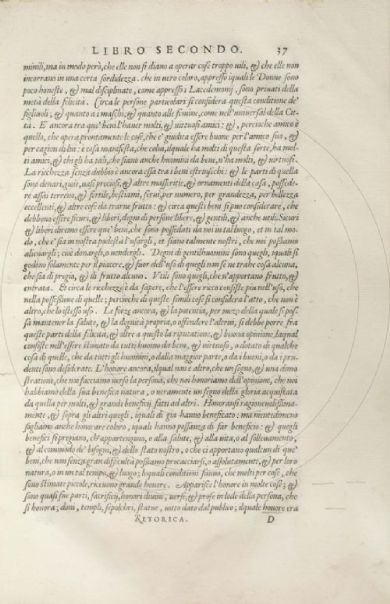 LIBRO SECONDO. 37
minili, ma in modo però, che elle non si diano a operar cose troppo uili, & che elle non
incorrano in una certa sordidezza. che in uero coloro, appresso i quali le Donne sono
poco honeste, & mal disciplinate, come appresso i Lacedemonij, sono priuati della
metà della felicità. Circa le persone particolari si considera questa conditione de'
figliuoli, & quanto a i maschi, & quanto alle femine, come nell'uniuersal della Cit
tà. E' ancora tra que' beni l'hauer molti, & uirtuosi amici; &, percioche amico è
quello, che opera prontamente le cose, che e' giudica essere buone per l'amico suo, &
per cagion di lui: è cosa manifesta, che colui, il quale ha molti di questa sorte, ha mol-
ti amici, & chi gli ha tali, che siano anche huomini da bene, n'ha molti, & uirtuosi.
La ricchezza senza dubbio è ancora essa tra i beni estrinsechi: & le parti di quella
sono denari, quasi procuse, & altre masseritie, & ornamenti della casa, possede-
re assai terreno, & fertile, bestiami, serui, per numero, per grandezza, per bellezza
eccellenti, & altre cose da trarne frutto: & circa questi beni si può considerare, che
debbono essere sicuri, & liberi, degni di persone libere, & gentili, & anche utili. Sicuri
& liberi diremo essere que' beni, che sono posseduti da noi in tal luogo, et in tal mo-
do, che e' sia in nostra podestà l'usargli, et siano talmente nostri, che noi possiamo
alienargli; cioè donargli, o uendergli. Degni di gentilhuomini sono quegli, i quali si
godono solamente per il piacere, & fuor dell'uso di quegli non se ne trahe cosa alcuna,
che sia di pregio, & di frutto alcuno. Vtili sono quegli, che n'apportano frutto, &
entrata. Et circa le ricchezze è da sapere, che l'essere ricco consiste più nell'usi, che
nella possessione di quelle; percioche di queste simili cose si considera l'atto, che non è
altro, che lo istesso uso. Le forze ancora, & la potentia, per mezo della quale si pos-
sa mantener la salute, & la dignità propria, o offendere l'altrui, si debbe porre fra
queste parti della felicità, & oltre a questo la riputatione, & buona opinione. La qual
consiste nell'essere istimato da tutti huomo da bene, & uirtuoso, o dotato di qualche
cosa di quelle, che da tutti gli huomini, o dalla maggior parte, o da i buoni, o da i pru-
denti sono desiderate. L'honore ancora, il qual non è altro, che un segno, & una dimo
stratione, che noi facciamo uerso la persona, che noi honoriamo dell'opinione, che noi
habbiamo della sua benefica natura, o ueramente un segno della gloria acquistata
da quella per molti, & grandi beneficij fatti ad altri. Honoransi ragioneuolissima-
mente, & sopra gli altri quegli, i quali di già hanno beneficato: ma nientedimeno
sogliamo anche honorare coloro, i quali hanno possanza di far beneficio: & quegli
beneficij si pregiano, ch'appartengono, o alla salute, & alla uita, o al solleuamento,
& al commodo de' bisogni, & dello stato nostro, o che ci apportano qualcun di que'
beni, che non senza gran difficultà possiamo procacciarsi, o assolutamente, & per loro
natura, o in un tal tempo, & luogo; le quali conditioni fanno, che molti per cose, che
sono stimate piccole, riceuono grande honore. Apparisce l'honore in molte cose; &
sono quasi sue parti, sacrificij, honori diuini, uersi, & prose in lode della persona, che
si honora; doni, templi, sepolchri, statue, uitto dato dal publico, il quale honore era
RETORICA. D